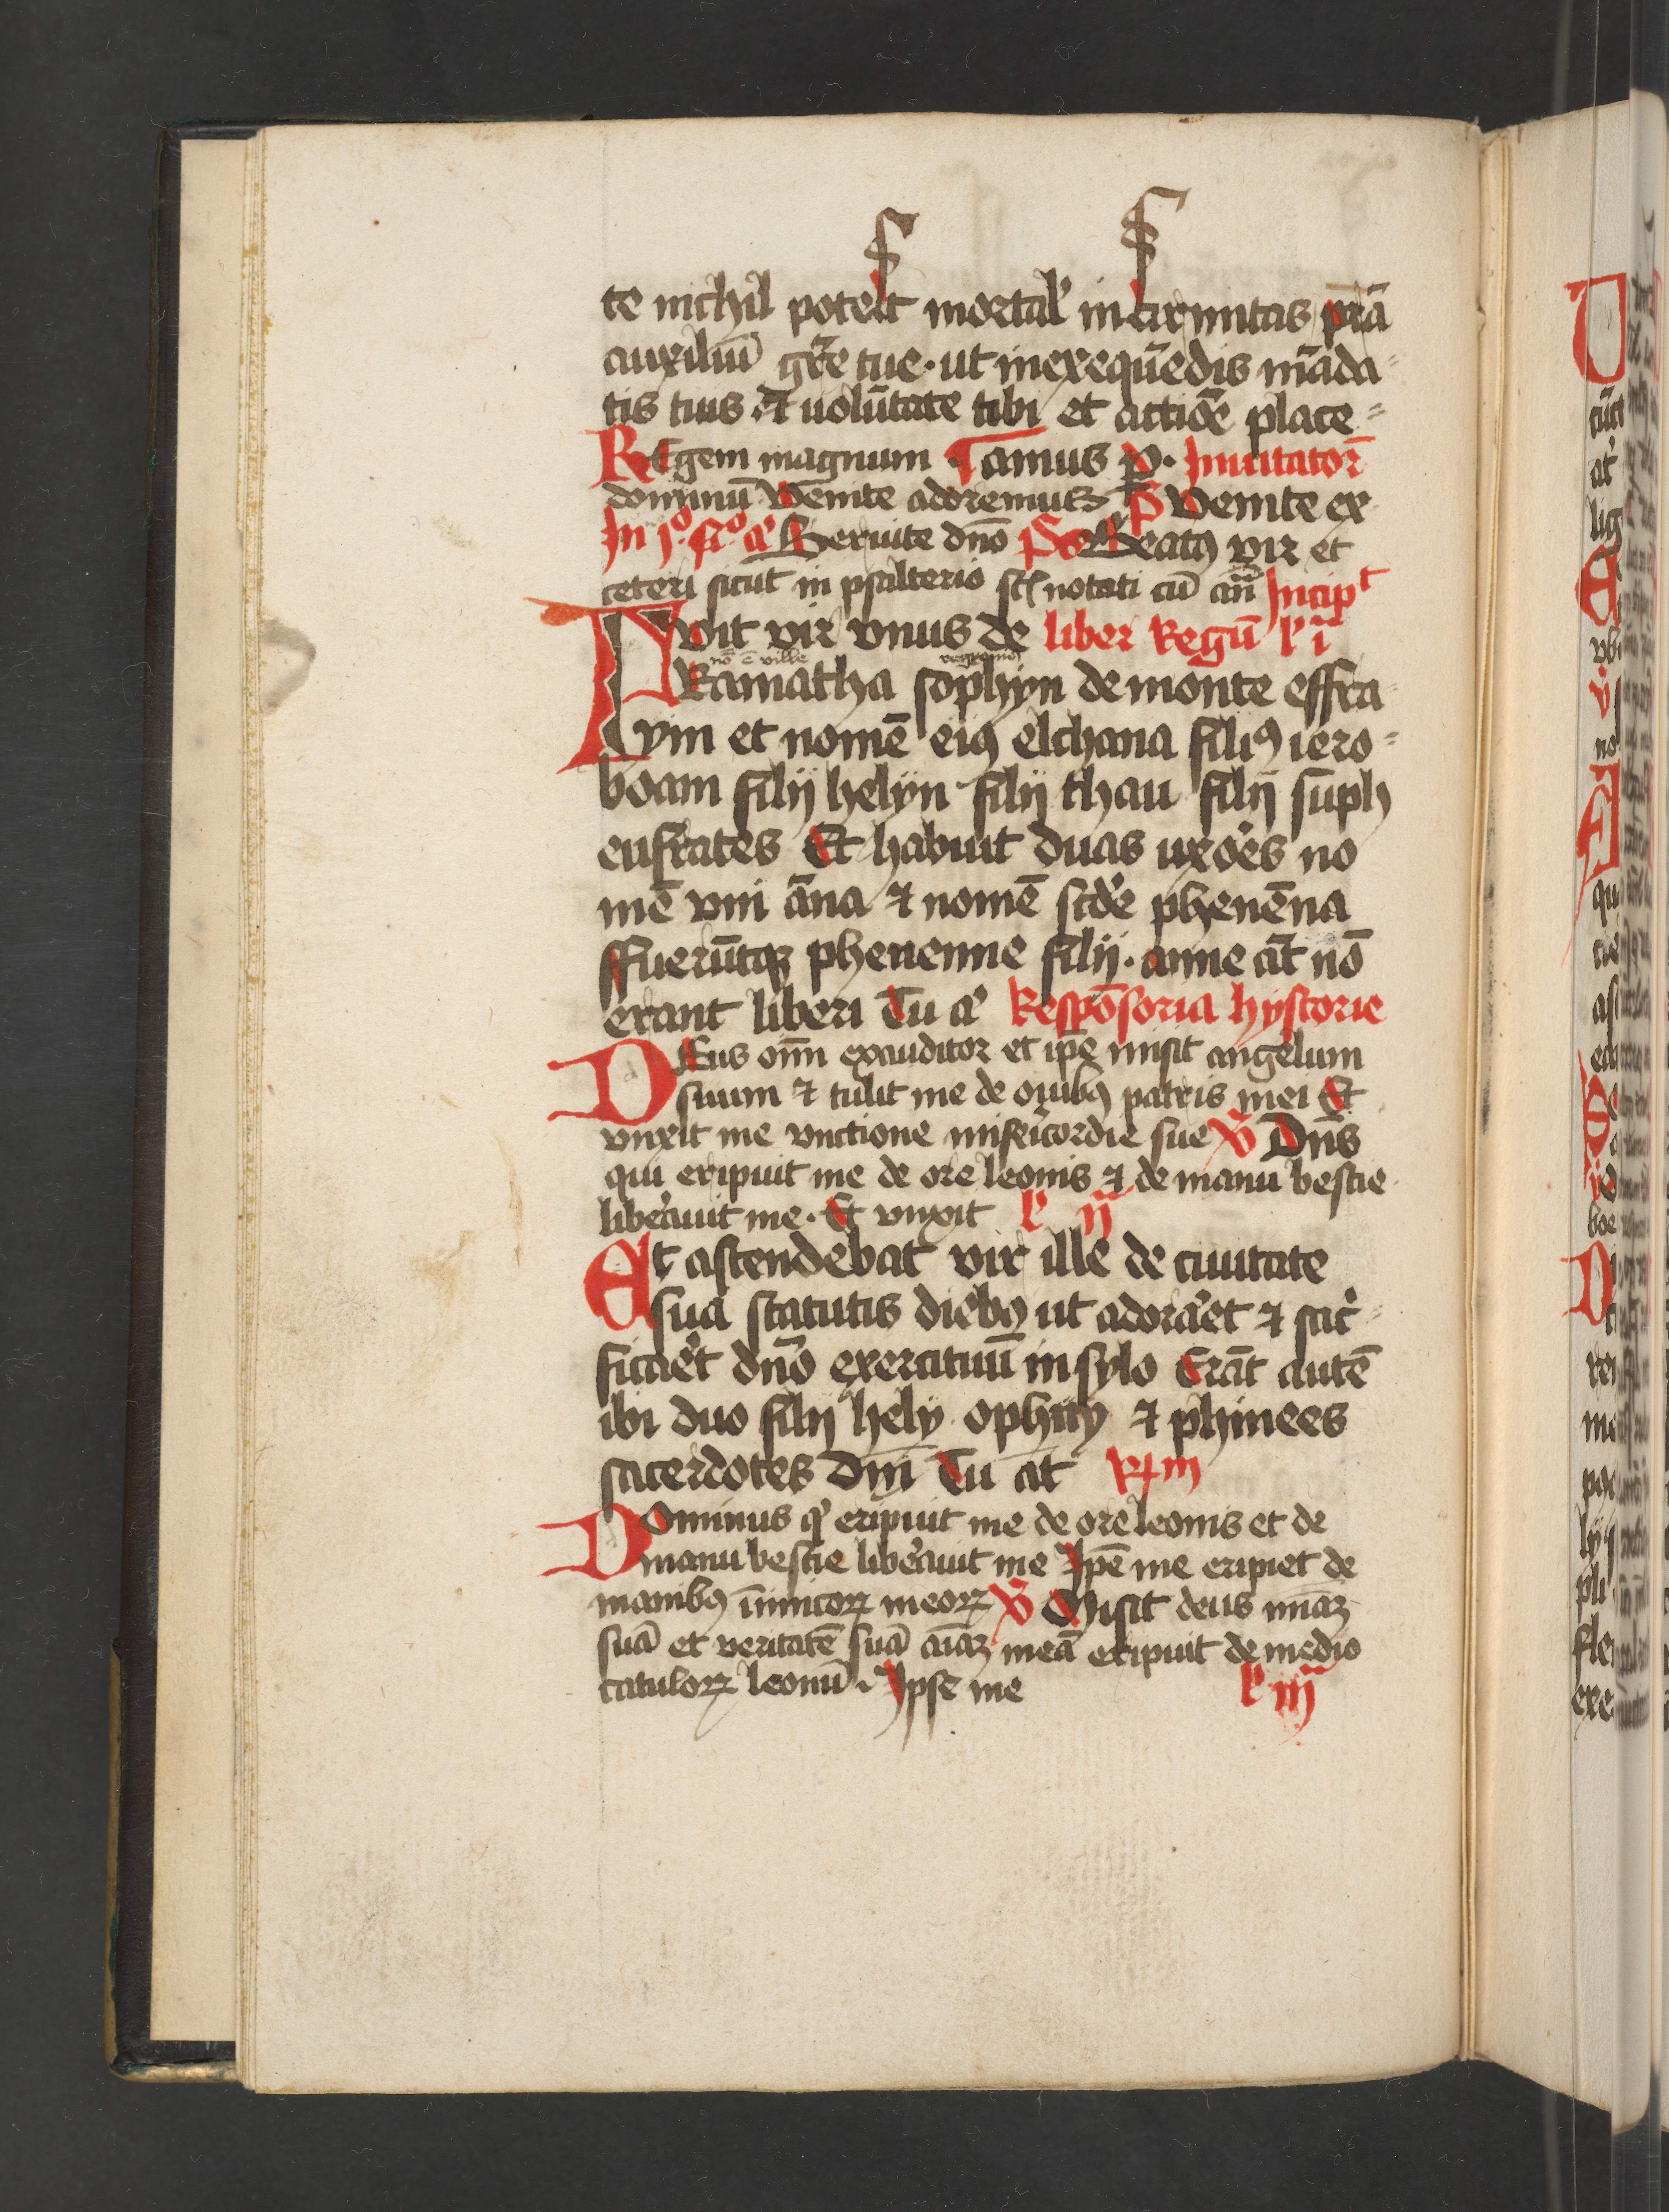 te nichil potest mortal' infirmitas p̄rā
auxiliū gr̄e tue · ut in exequēdis māda
tis tuis · ⁊ uolūtate tibi et actiōe place
REgem magnum · Inuitatoꝛ̄
dominū Venite adoremus P̄ Venite ex
In j° n° a' Seruite dn̄o Ps Beatꝯ vir et
ceteri sicut in psalterio st̄ notati cū an̄ Incip̄t
FVit vir vnus de liber Regū l' i
nō ē ville
Ramatha sophyn de monte effra
ym et nomē eiꝯ elchana filiꝯ iero
boam filij helyn filij thau filij suph
eufrates Et habuit duas uxo'es no
mē vni āna ⁊ nomē scd'e phenēna
ffuerūtqꝫ phenenne filij · anne āt nō
erant liberi Tu a' Respōsoria hystorie
DEus om̄ exauditor et ip̄e misit angelum
suum ⁊ tulit me de ouibꝯ patris mei Et
vnxit me vnctione misericordie sue V̄ Dn̄s
qui eripuit me de ore leonis ⁊ de manu bestie
libe'auit me · Et vnxit l' ij
Et ascendebat vir ille de ciuitate
sua statutis diebꝯ ut adora'et ⁊ sac'
fica'et dn̄o exercituū in sylo Erāt autē
ibi duo filij hely ophny ⁊ phinees
sacerdotes dn̄i Tu āt R̸ m
Dominus q' eripuit me de ore leonis et de
manu bestie libe'auit me Ip̄e me eripiet de
manibꝯ īnimicoꝝ meoꝝ V̄ Misit deus mīaꝫ
suā et veritatē suā aīaꝫ meā eripuit de medio
catuloꝝ leonū · Ipse me l' iij